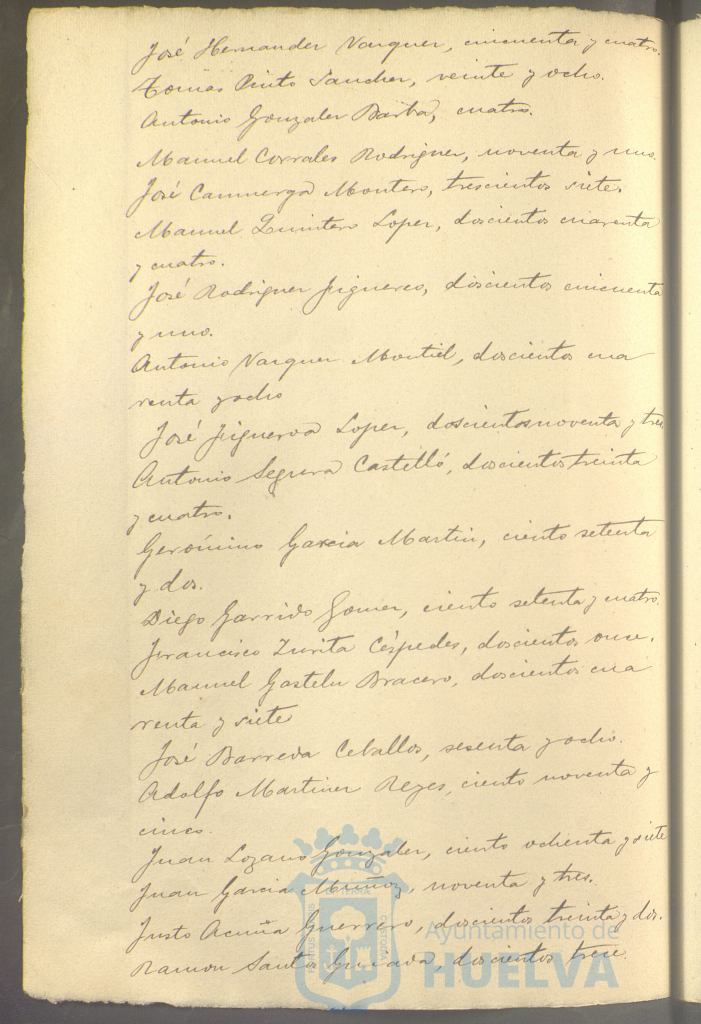 José Hernander Varquer, cincuenta y cuatro.
Tomas Pinto Sancher, veinte y ocho.
Antonio Gonzaler Barba, cuatro.
Manuel Corrales Rodriguer, noventa y uno.
José Camuerga Montero, trescientos siete.
Manuel Quintero Loper, doscientos cuarenta
y cuatro.
José Rodriguer Figuereo, doscientos cincuenta
y uno.
Antonio Varquer Montiel, doscientos cua
renta y ocho
José Figueroa Loper, doscientos noventa y tres
Antonio Segura Castelló, doscientos treinta
y cuatro.
Gerónimo Garcia Martin, ciento setenta
y dos.
Diego Garrido Gomer, ciento setenta y cuatro.
Francisco Zurita Céspedes, doscientos once.
Manuel Gastelu Bracero, doscientos cua
renta y siete
José Barreda Ceballos, sesenta y ocho.
Adolfo Martiner Reyes, ciento noventa y
cinco.
Juan Lozano Gonzaler, ciento ochenta y siete
Juan Garcia Muñoz, noventa y tres.
Justo Acuña Guerrero, doscientos treinta y dos.
Ramon Santos Quesada, doscientos trece.
Ayuntamiento de
HUELVA